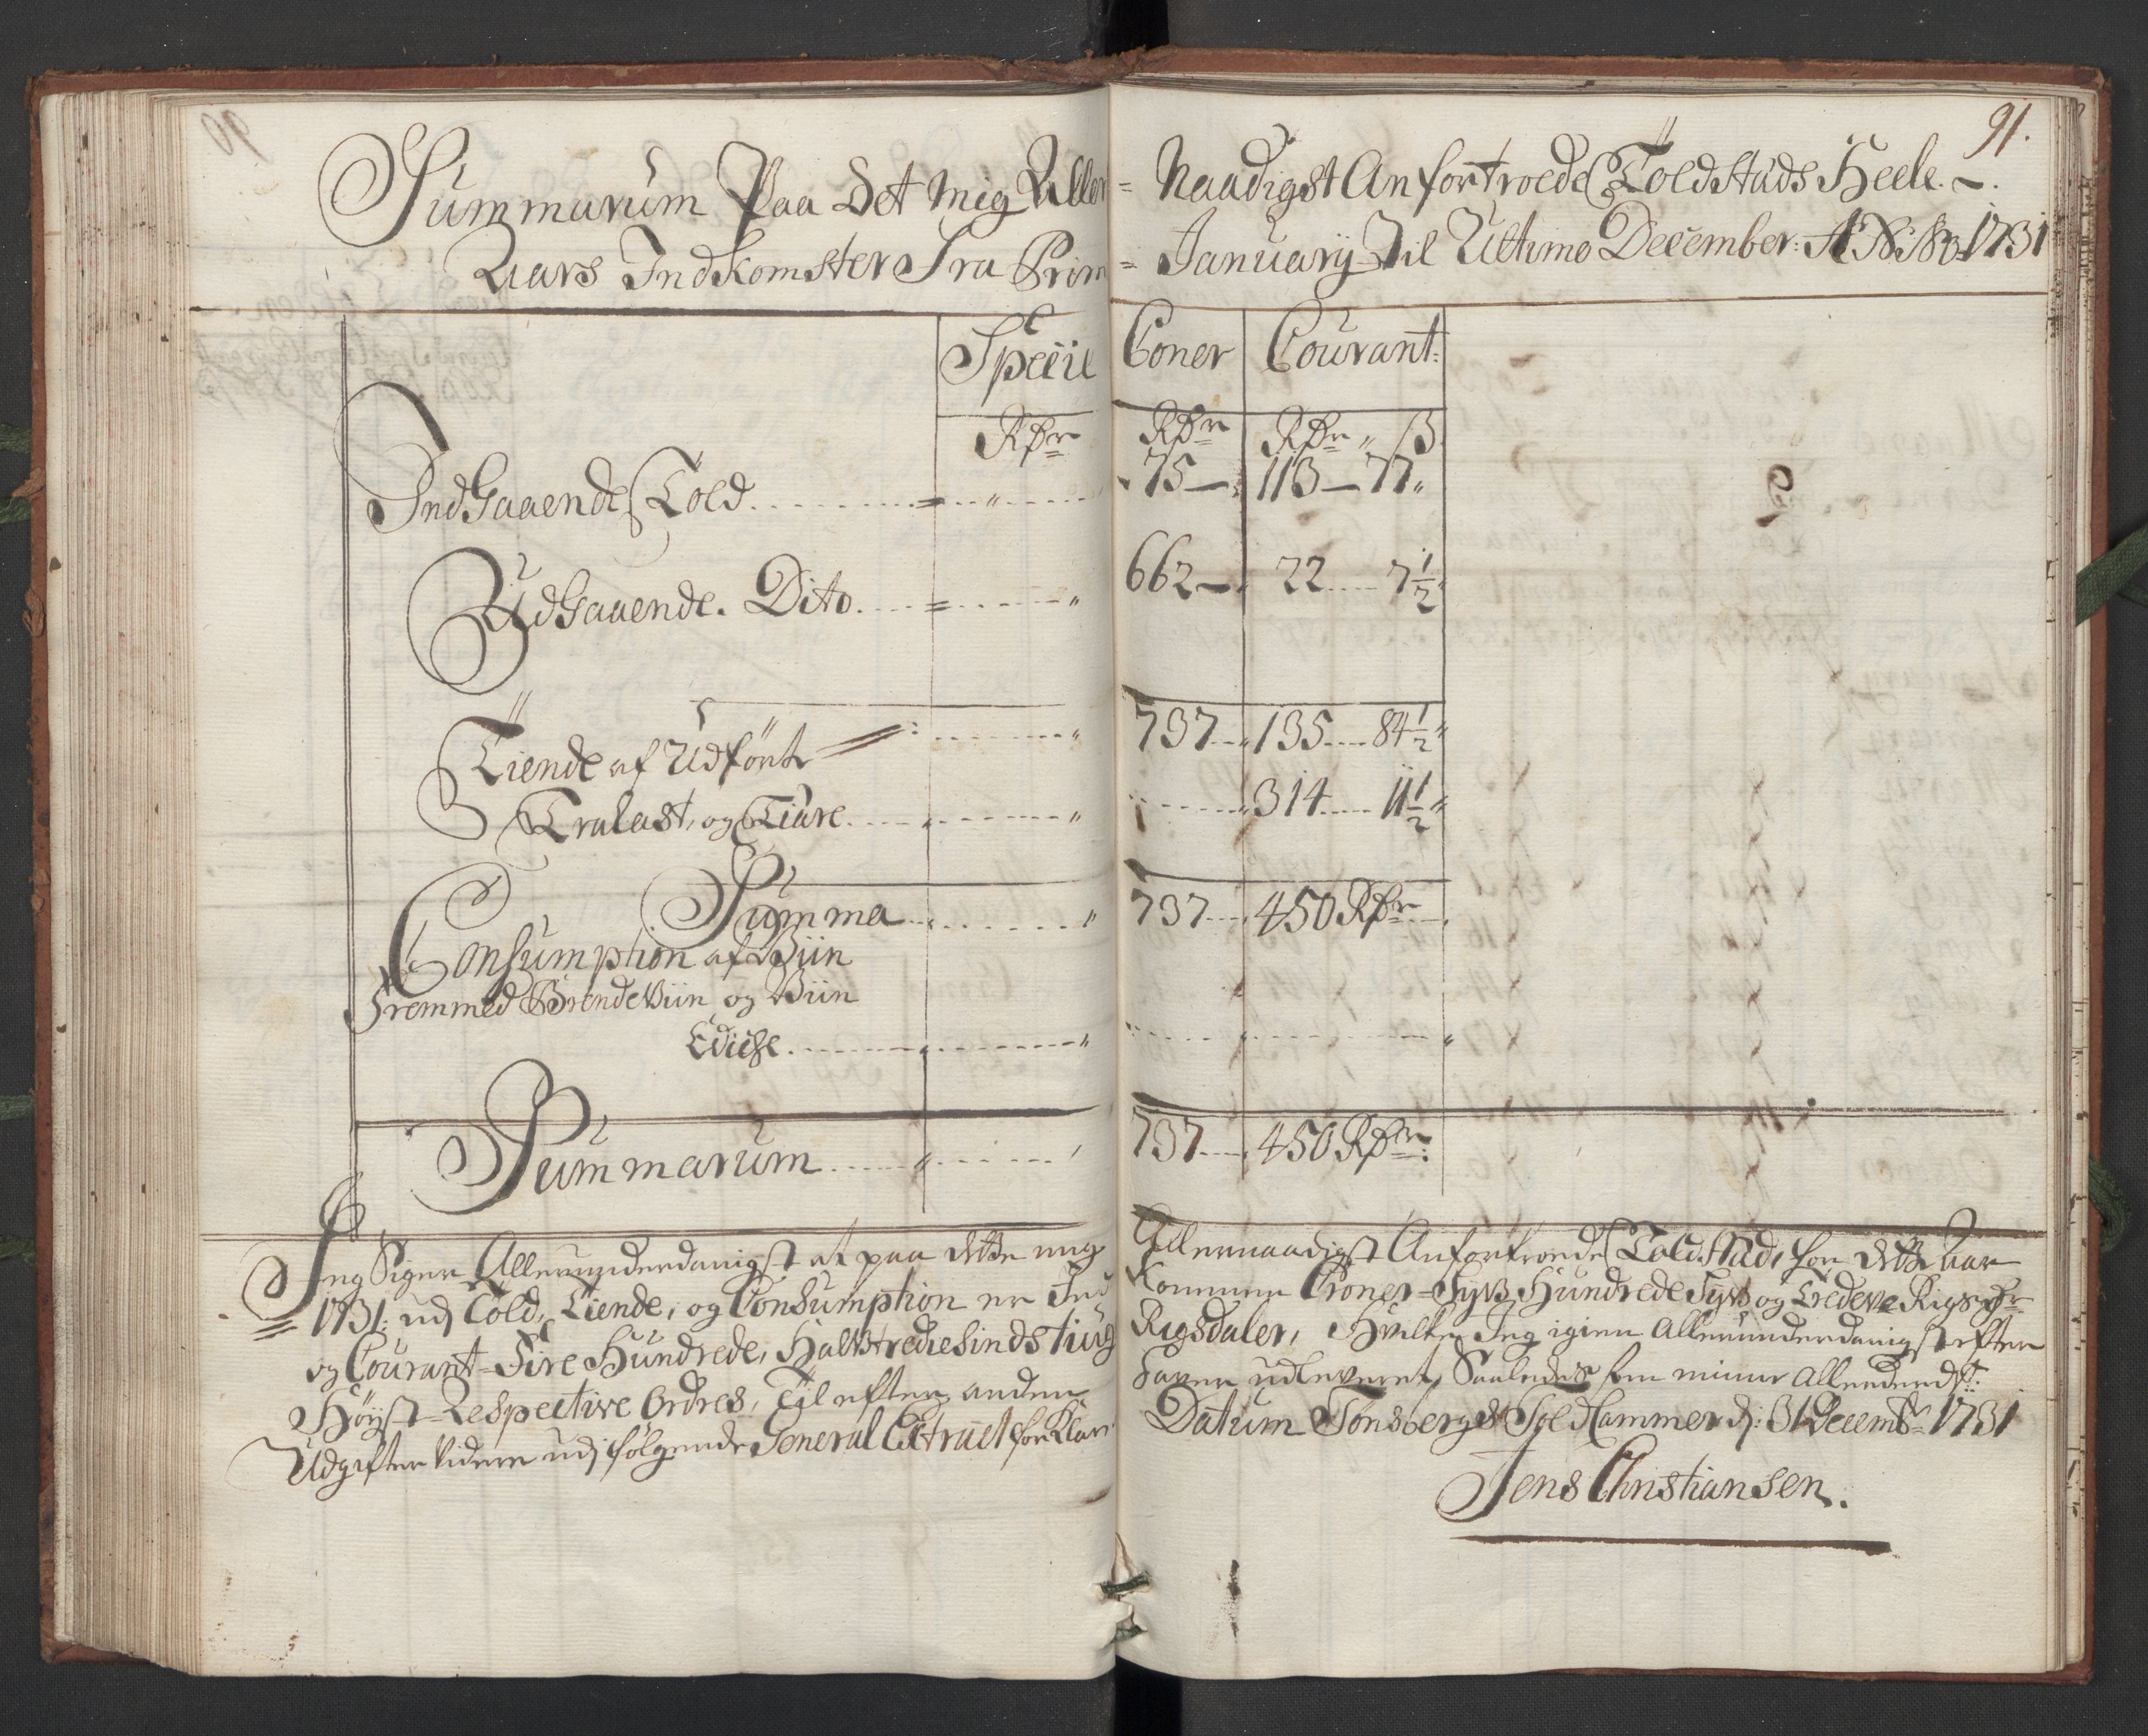 91.
Summarum Paa Det Mig Aller = Naadigst Anfortroede Toldstæds Heele
Aars Indkomster Fra Prim = January Til Ultimo December: A̅o̅ 1731
Specie Croner Courant:
Rdr Rdr Rdr ß
IndGaaende Told 75 113 77
UdGaaende Dito 662 22 7 1/2
737 135 84 1/2
Tiende af Udført
Tralast, og Tiære 314 11 1/2
Summa 737 450 Rdr
Consumption af Viin
Fremmed BrendeViin og Viin
Edicke
Summarum 737 450 Rdr:
Jeg Siger Allerunderdanigst at paa dette mig Allernaadigst Anfortroede Toldstæd, for dette Aar
1731: udj Told, Tiende, og Consumption er Ind Kommen Croner = Syv Hundrede Syv og Tredeve Rigsdr
og Courant = Fire Hundrede, Halvtrediesindstiug Rigsdaler, Hvilke Jeg igien Allerunderdanigst efter
Høyst = Respective Ordres, udleveret, Saaledes som min
Udgifter Videre udj følgende General Extract for Klarer Datum Tonsbergs Told Cammer dj: 31 Decemb 1731
Jens Christiansen.